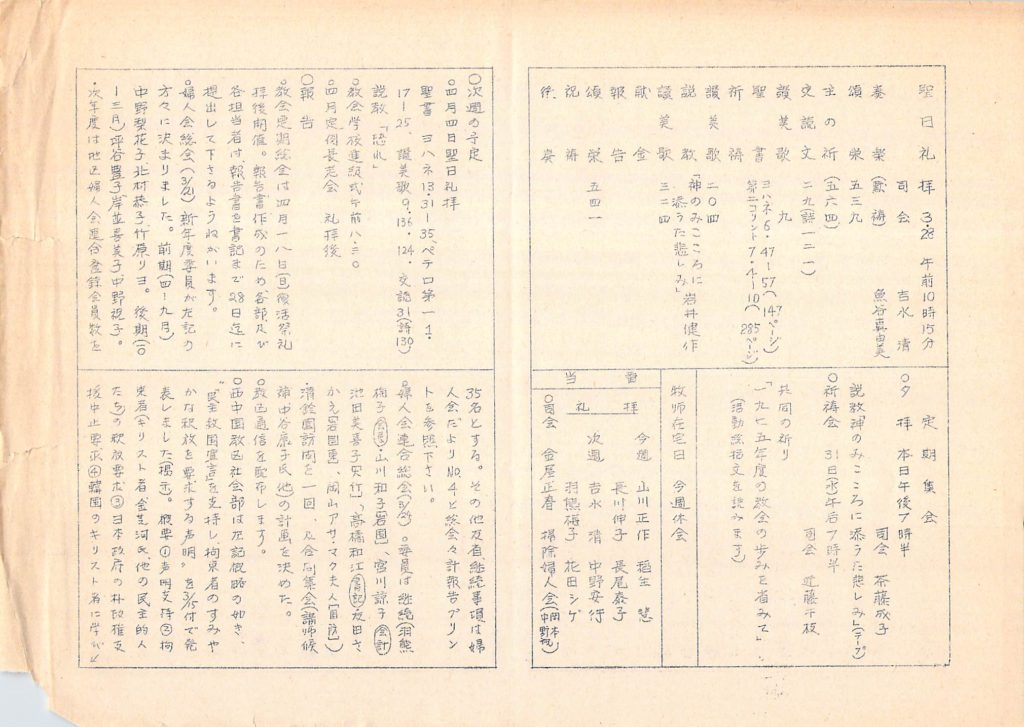 聖日礼拝 3.28 午前10時15分
司会 吉永 清
奏楽 (黙祷) 魚谷真由美
頌栄 五三九
主の祈 (五六四)
交読文 二九(詩一二一)
讃美歌 九
聖書 ヨハネ6・47ー57(147ページ)
第二コリント7・4ー10(285ページ)
祈祷
讃美歌 二〇四
説教 「神のみこころに添うた悲しみ」 岩井健作
讃美歌 三二四
献金
報告
頌栄 五四一
祝祷
後奏
定期集会
○夕拝 本日午後7時半
司会 茶藤成子
説教「神のみこころに添うた悲しみ」(テープ)
○祈祷会 31日(水)午后7時半
司会 近藤千枝
共同の祈り
「一九七五年度の教会の歩みを省みて」
(活動総括文を読みます)
牧師在宅日 今週休会
当番
礼拝
今週 山川正作 稲生 慧
長川伸子 長尾泰子
次週 吉永 清 中野安行
羽熊梅子 花田シゲ
○司会 金屋正春 掃除婦人会(岡本 中野祝)
○次週の予定
○四月四日聖日礼拝
聖書 ヨハネ13・31ー35、ペテロ第一1・
17ー25、讃美歌9・136・124・交読31(詩130)
説教「恐れ」
○教会学校進級式 午前八・三〇
○四月定例長老会 礼拝後
○報告
・教会定期総会は四月一八日(日)復活祭礼
拝後開催。報告書作成のため、各部及び
各担当者は、報告書を書記まで28日迄に
提出して下さるようねがいます。
○婦人会総会(3/21) 新年度委員が左記の
方々に決まりました。前期(四ー九月)
中野梨花子、北村恭子、竹原リヨ。後期(一〇
ー三月)坪谷豊子、岸並喜美子、中野祝子。
・次年度は地区婦人会連合登録会員数を
35名とする。その他反省、継続事項は婦
人会だよりNo.4と総会々計報告プリン
トを参照下さい。
・婦人会連合総会(3/26) ○委員は継続(羽熊
梅子(会長)・山川和子[岩国]、宮川諒子(会計)
池田英喜子[大竹]、高橋和江(書記)友田さ
かえ[岩国東]、岡山アサ・マクト夫人[自衛]
・清鈴園訪問を一回、及合同集会(講師候
補中谷康子氏他)の計画を決めた。
・教区通信を配布します。
○西中国教区社会部は左記概略の如き、
“民主救国宣言を支持し拘束者のすみや
かな釈放を要求する声明”を3/15付で発
表しました(掲示)。概要①声明支持②拘
束者(キリスト者金芝河氏、他の民主的人
たち)の釈放要求③日本政府の朴政権支
援中止要求④韓国のキリスト者に学び↙